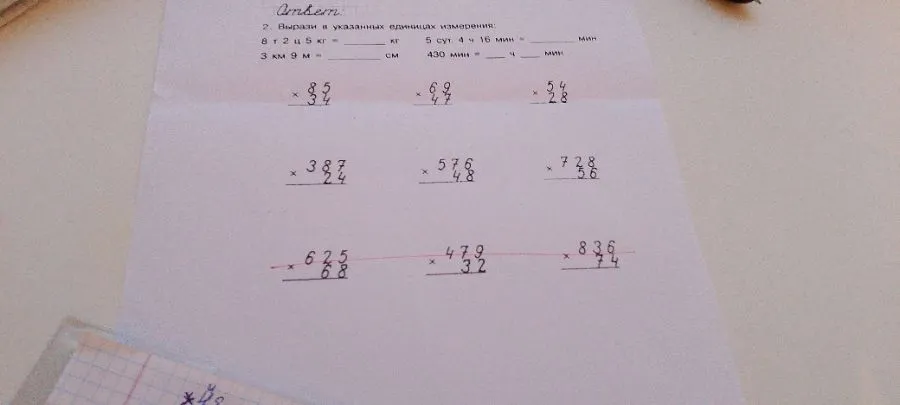 Ответ.
2. Вырази в указанных единицах измерения:
8 т 2 ц 5 кг = ______ кг 5 сут. 4 ч 16 мин = ______ мин
3 км 9 м = ______ см 430 мин = ___ ч ___ мин
85 69 54
× 34 × 47 × 28
387 576 728
× 24 × 48 × 56
625 479 836
× 68 × 32 × 74